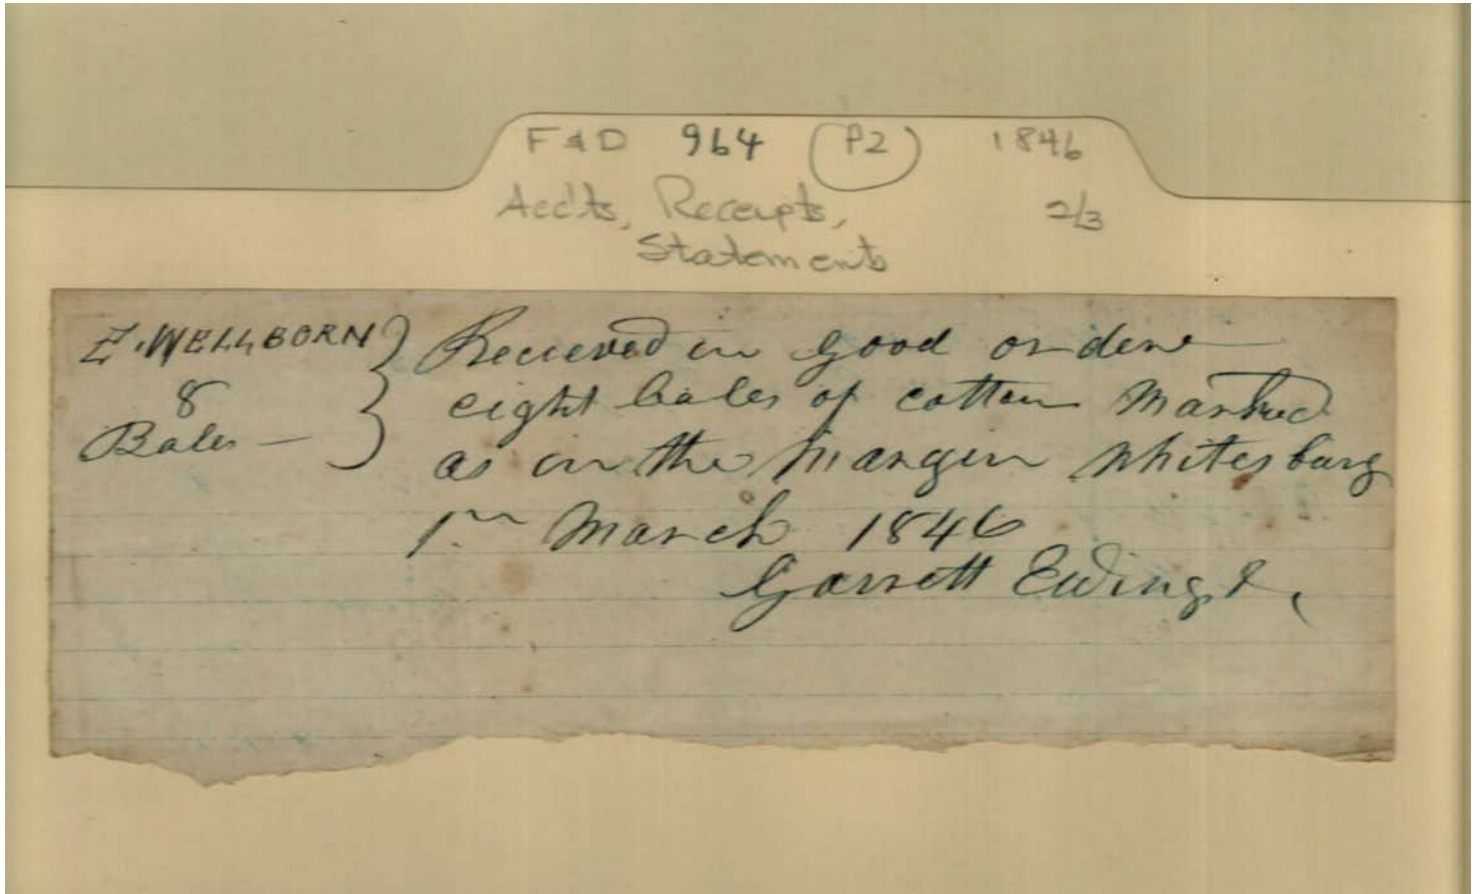 F & D 964 (P2) 1846
Accts, Receipts, 2/3
Statements
E. WELLBORN
8
Bales —
Recieved in good ordere
eight bales of cotten Marked
as in the Margin Whitesburg
1st March 1846
Garrett Ewing